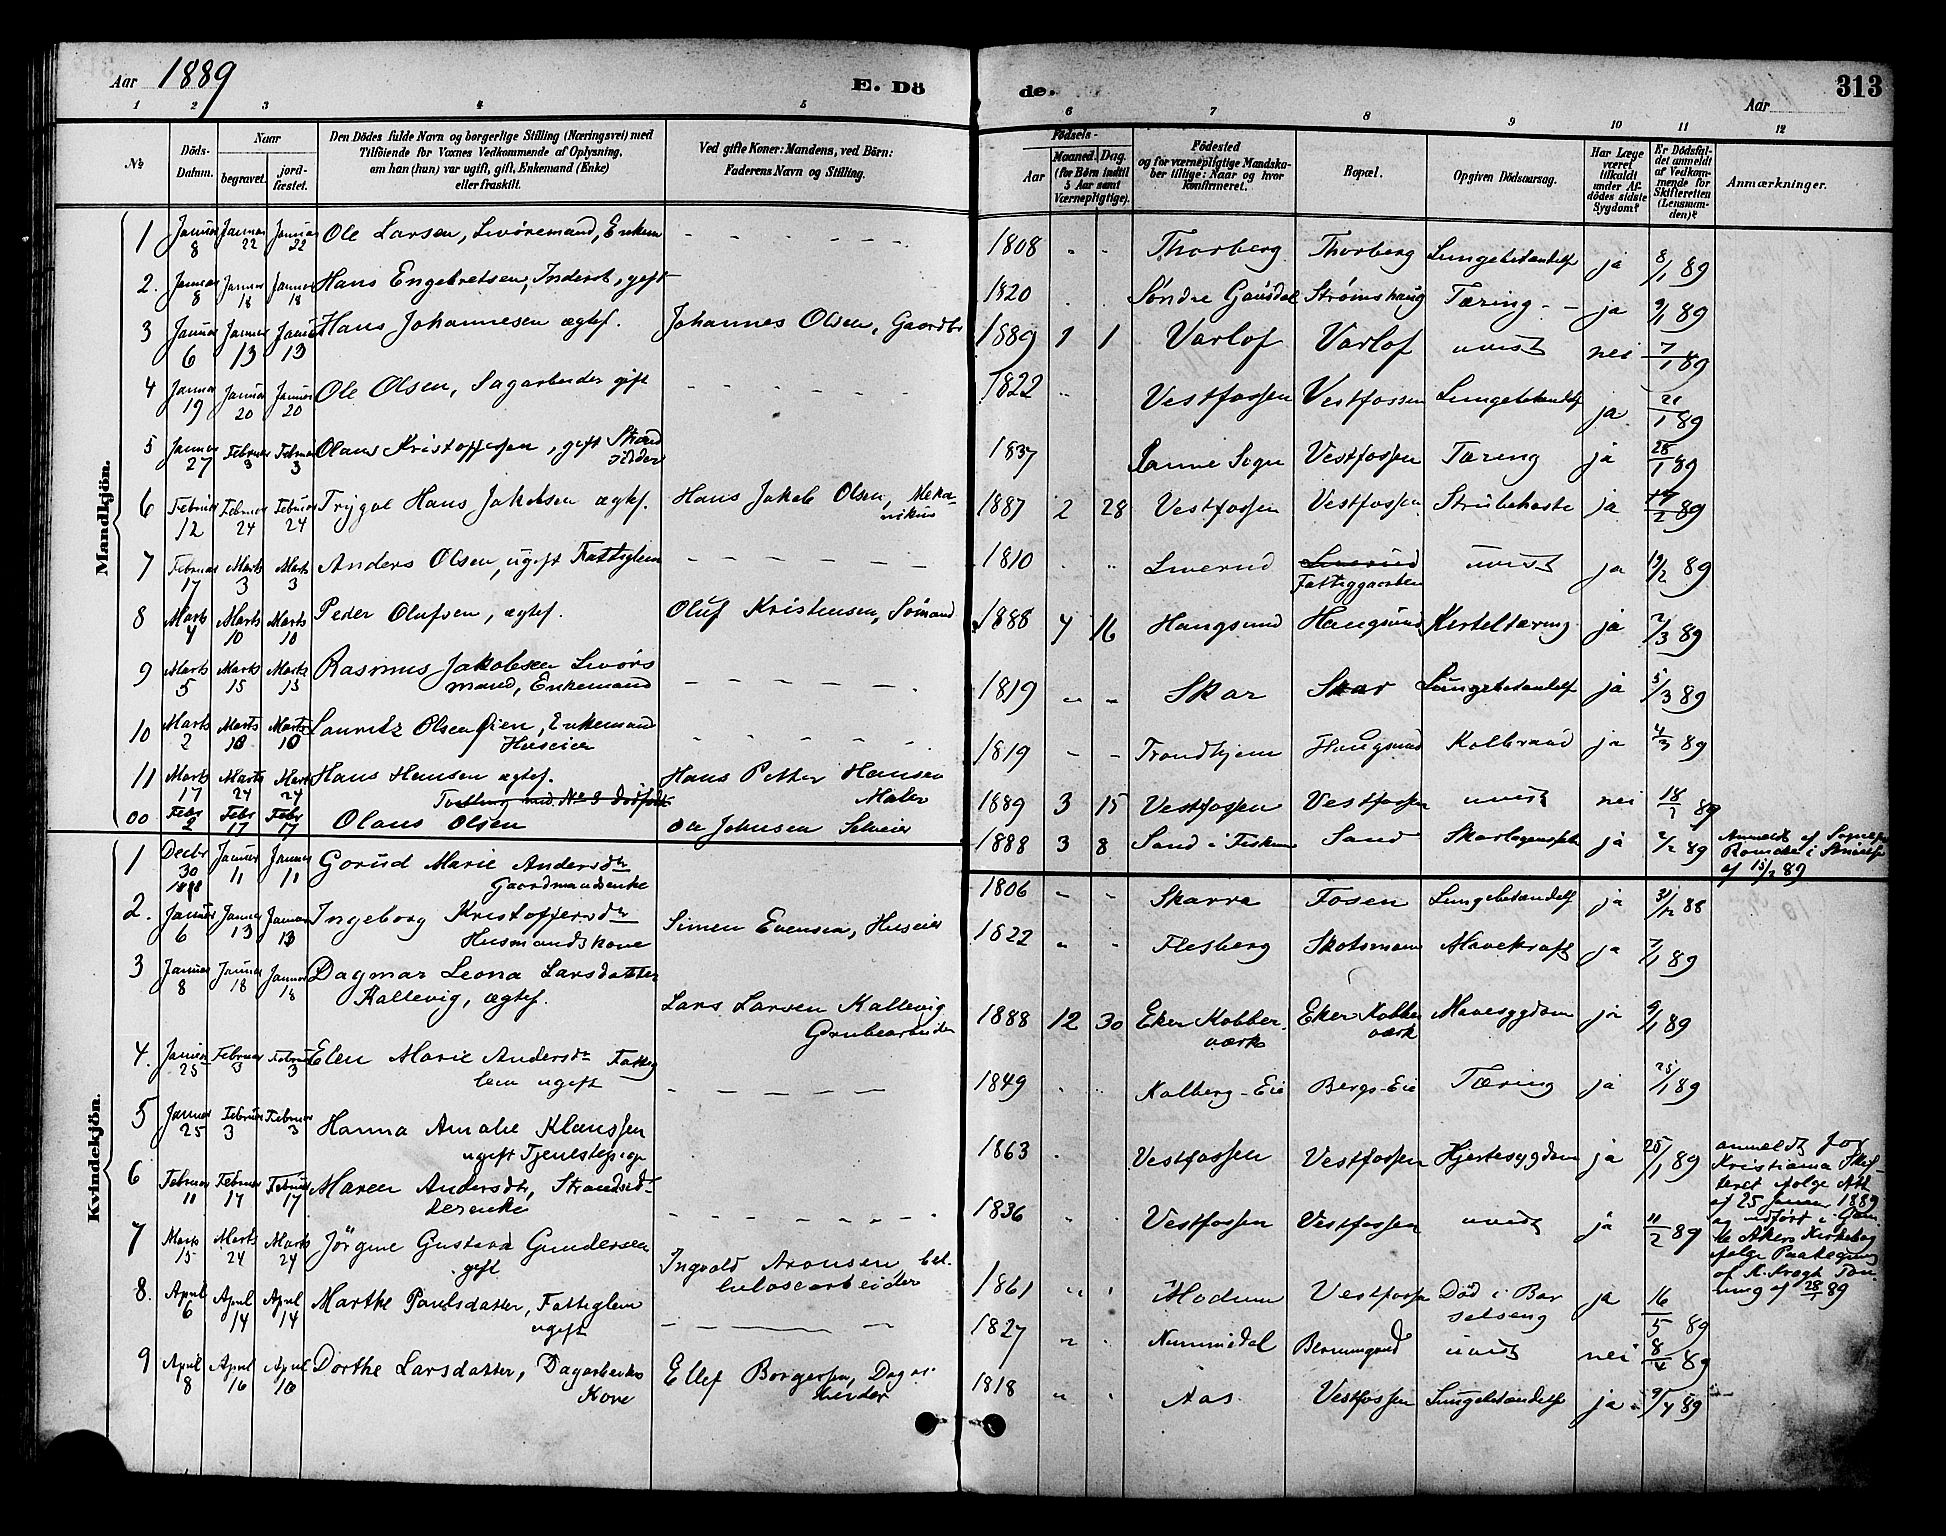 Aar 1889
E. Dö de.
Aar
313
1 2 3 4 5 6 7 8 9 10 11 12
No
Döds-
Datum.
Naar
begravet.
jord-
fæstet.
Den Dödes fulde Navn og borgerlige Stilling (Næringsvei) med
Tilföiende for Voxnes Vedkommende af Oplysning,
om han (hun) var ugift, gift, Enkemand (Enke)
eller fraskilt.
Ved gifte Koner: Mandens, ved Börn:
Faderens Navn og Stilling.
Födsels-
Aar
Maaned. Dag.
(for Börn indtil
5 Aar samt
Værnepligtige).
Födested
og for værnepligtige Mandska-
ber tillige: Naar og hvor
konfirmeret.
Bopæl.
Opgiven Dödsaarsag.
Har Læge
været
tilkaldt
under Af-
dödes sidste
Sygdom?
Er Dödsfal-
det anmeldt
af Vedkom-
mende for
Skifteretten
(Lensman-
den)?
Anmærkninger.
Mandkjön.
1 Januar 8 Januar 22 Januar 22 Ole Larsen, Livöremand, Enkem - - - - - 1808 " - Thorberg Thorberg Lungebetændelse ja 8/1 89
2. Januar 8 Januar 18 Januar 18 Hans Engebretsen, Inderst, gift 1820 Söndre Gausdal Strömshaug Tæring - - ja 9/1 89
3 Januar 6 Januar 13 Januar 13 Hans Johannesen ægtef. Johannes Olsen, Gaardbr 1889 1 1 Varlof Varlof uvist nei 7/1 89
4 Januar 19 Januar 20 Januar 20 Ole Olsen, Sagarbeider gift - - - - - 1822 " Vestfossen Vestfossen Lungebetændelse ja 21/1 89
5 Januar 27 Februar 3 Februar 3 Olaus Kristoffersen, gift Strand
sidder 1837 Sanne Sogn Vestfossen Tæring ja 28/1 89
6 Februar 12 Februar 24 Februar 24 Trygve Hans Jakobsen ægtef. Hans Jakob Olsen, Meka-
nikus 1887 2 28 Vestfossen Vestfossen Strubehoste ja /2 89
7 Februar 17 Marts 3 Marts 3 Anders Olsen, ugift Fattiglem - - - - - 1810 " " Liverud Liverud
Fattiggaarden uvist ja 19/2 89
8 Marts 4 Marts 10 Marts 10 Peder Olufsen, ægtef. Oluf Kristensen, Sömand 1888 4 16 Haugsund Haugsund Kjerteltæring ja /3 89
9 Marts 5 Marts 15 Marts 15 Rasmus Jakobsen Livörs
mand, Enkemand - - - - - 1819 " " Skar Skar Lungebetændelse ja 5/3 89
10 Marts 2 Marts 10 Marts 10 Lauritz Olsen Öien, Enkemand
Huseier - - - - - 1819 - - Trondhjem Haugsund Koldbrand ja 4/3 89
11 Marts 17 Marts 24 Marts 24 Hans Hansen ægtef. Hans Petter Hansen
Maler 1889 3 15 Vestfossen Vestfossen uvist nei 18/3 89
00 Febr 2 Febr 17 Febr 17 Olaus Olsen Ole Johnsen Selveier 1888 3 8 Sand i Fiskum Sand Skarlagensfeber ja 2/2 89 Anmeldt af Sognepr
af 15/2 89
Kvindekjön.
1 Decbr 30 1888 Januar 11 Januar 11 Gorud Marie Andersdtr
Gaardmandsenke 1806 - - Skarra Fosen Lungebetændelse ja 31/12 88
2. Januar 6 Januar 13 Januar 13 Ingeborg Kristoffersdtr
Husmandskone Simen Evensen, Huseier 1822 " " Flesberg Skotsmoen Mavekræft ja 7/1 89
3 Januar 8 Januar 18 Januar 18 Dagmar Leona Larsdatter
Kallevig, ægtef. Lars Larsen Kallevig
Grubearbeider 1888 12 30 Eker Kobber
værk Eker Kobber
værk Mavesygdom ja 9/1 89
4. Januar 25 Februar 3 Februar 3 Elen Marie Andersdtr Fattig
lem ugift - - - - - 1849 Kolberg-Eie Bergs-Eie Tæring ja 25/1 89
5 Januar 25 Februar 3 Februar 3 Hanna Amalie Klaussen
ugift Tjenestepige 1863 Vestfossen Vestfossen Hjertesygdom ja 25/1 89 anmeldt for
Kristiania Skif-
teret ifölge Att
af 25 Januar 1889
og indfört i Gam-
le Akers Kirkebog
ifölge Paategning
af 28/1 89
6 Februar 11 Februar 17 Februar 17 Maren Andersdtr, Strandsid-
derenke - - - - - 1836 Vestfossen Vestfossen uvist ja 11/2 89
7 Marts 15 Marts 24 Marts 24 Jörgine Gustava Gundersen
gift Ingvald Aronsen Cel-
lulosearbeider 1861 " Modum Vestfossen Död i Bar
selseng ja 16/5 89
8. April 6 April 14 April 14 Marthe Paulsdatter, Fattiglem
ugift - - - 1827 " Nummedal uvist nei 8/4 89
9 April 8 April 16 April 16 Dorthe Larsdatter, Dagarbeiders
Kone Ellef Borgersen, Dagar
beider 1818 " Aas Vestfossen Lungebetændelse ja 9/4 89